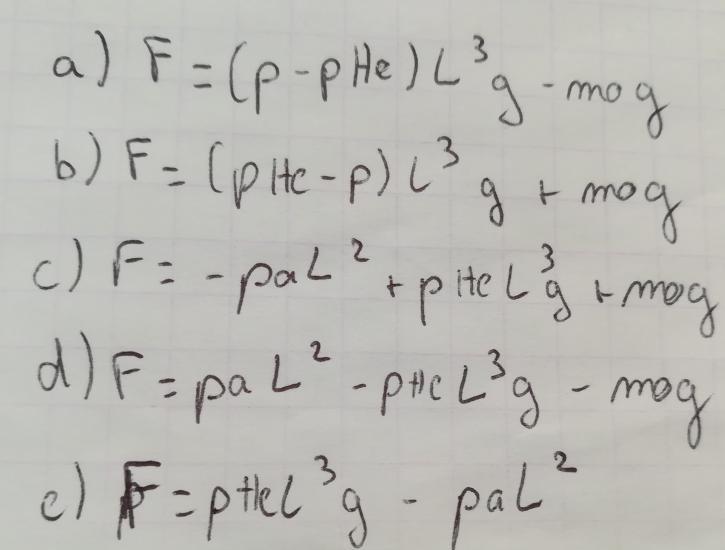 a) F = (p - pHe) L³g - mog
b) F = (pHe - p) L³ g + mog
c) F = - paL² + pHeL³g + mog
d) F = paL² - pHeL³g - mog
e) F = pHeL³g - paL²